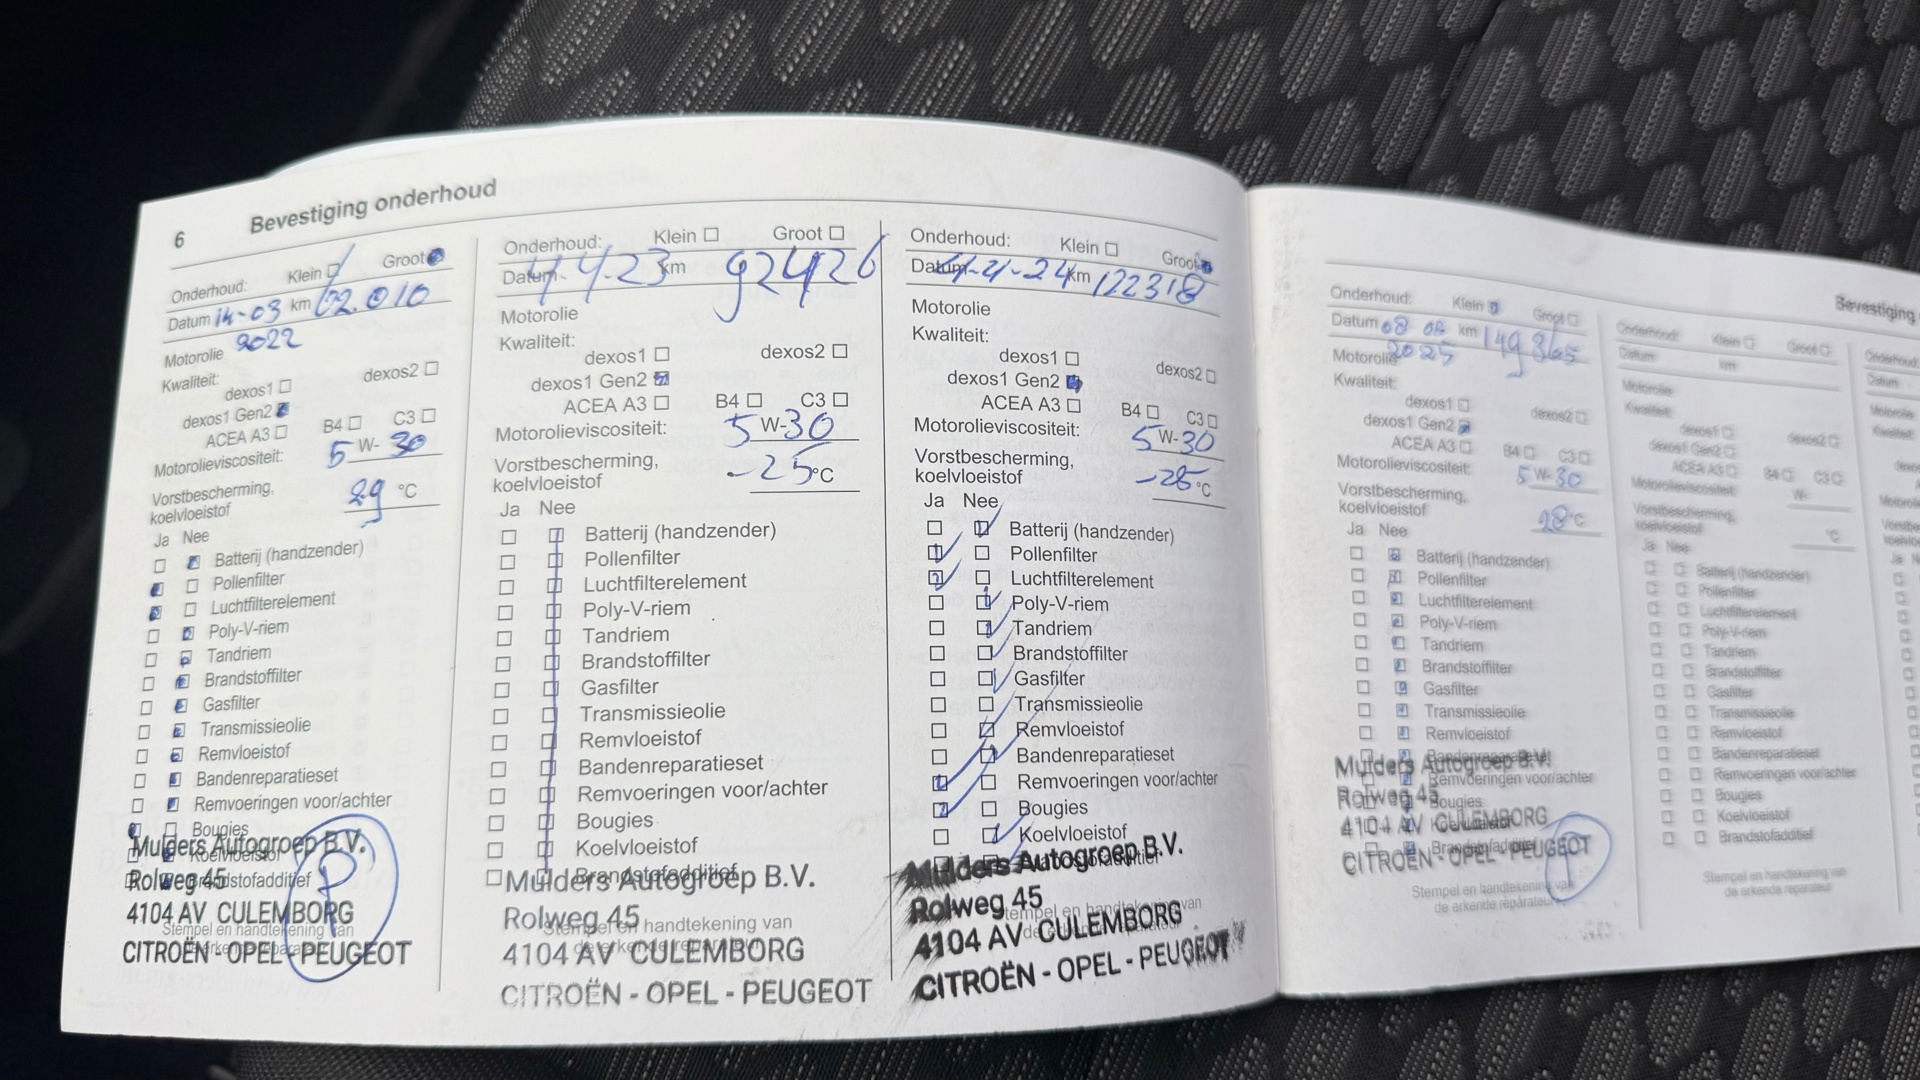 6 Bevestiging onderhoud
Onderhoud: Klein Groot
Datum 14-03 km 62.010
2022
Motorolie
Kwaliteit:
dexos1 dexos2
dexos1 Gen2
ACEA A3 B4 C3
Motorolieviscositeit: 5 W- 30
Vorstbescherming,
koelvloeistof 29 °C
Ja Nee
Batterij (handzender)
Pollenfilter
Luchtfilterelement
Poly-V-riem
Tandriem
Brandstoffilter
Gasfilter
Transmissieolie
Remvloeistof
Bandenreparatieset
Remvoeringen voor/achter
Bougies
Koelvloeistof
Brandstofadditief
Mulders Autogroep B.V.
Rolweg 45
4104 AV CULEMBORG
CITROËN - OPEL - PEUGEOT
Stempel en handtekening van
de erkende reparateur
P
Onderhoud: Klein Groot
Datum 4-4-23 km 92426
Motorolie
Kwaliteit:
dexos1 dexos2
dexos1 Gen2
ACEA A3 B4 C3
Motorolieviscositeit: 5 W-30
Vorstbescherming,
koelvloeistof -25 °C
Ja Nee
Batterij (handzender)
Pollenfilter
Luchtfilterelement
Poly-V-riem
Tandriem
Brandstoffilter
Gasfilter
Transmissieolie
Remvloeistof
Bandenreparatieset
Remvoeringen voor/achter
Bougies
Koelvloeistof
Brandstofadditief
Mulders Autogroep B.V.
Rolweg 45
4104 AV CULEMBORG
CITROËN - OPEL - PEUGEOT
Stempel en handtekening van
de erkende reparateur
Onderhoud: Klein Groot
Datum 4-4-24 km 122318
Motorolie
Kwaliteit:
dexos1 dexos2
dexos1 Gen2
ACEA A3 B4 C3
Motorolieviscositeit: 5 W-30
Vorstbescherming,
koelvloeistof -28 °C
Ja Nee
Batterij (handzender)
Pollenfilter
Luchtfilterelement
Poly-V-riem
Tandriem
Brandstoffilter
Gasfilter
Transmissieolie
Remvloeistof
Bandenreparatieset
Remvoeringen voor/achter
Bougies
Koelvloeistof
Mulders Autogroep B.V.
Rolweg 45
4104 AV CULEMBORG
CITROËN - OPEL - PEUGEOT
Stempel en handtekening van
Bevestiging
Onderhoud: Klein Groot
Datum 08 08 km 149365
2025
Motorolie
Kwaliteit:
dexos1 dexos2
dexos1 Gen2
ACEA A3 B4 C3
Motorolieviscositeit: 5 W-30
Vorstbescherming,
koelvloeistof 28 °C
Ja Nee
Batterij (handzender)
Pollenfilter
Luchtfilterelement
Poly-V-riem
Tandriem
Brandstoffilter
Gasfilter
Transmissieolie
Remvloeistof
Bandenreparatieset
Remvoeringen voor/achter
Bougies
Koelvloeistof
Brandstofadditief
Mulders Autogroep B.V.
Rolweg 45
4104 AV CULEMBORG
CITROËN - OPEL - PEUGEOT
Stempel en handtekening van
de erkende reparateur
Onderhoud: Klein Groot
Datum km
Motorolie
Kwaliteit:
dexos1 dexos2
dexos1 Gen2
ACEA A3 B4 C3
Motorolieviscositeit: W-
Vorstbescherming,
koelvloeistof °C
Ja Nee
Batterij (handzender)
Pollenfilter
Luchtfilterelement
Poly-V-riem
Tandriem
Brandstoffilter
Gasfilter
Transmissieolie
Remvloeistof
Bandenreparatieset
Remvoeringen voor/achter
Bougies
Koelvloeistof
Brandstofadditief
Stempel en handtekening van
de erkende reparateur
Onderhoud:
Datum
Motorolie
Kwaliteit: